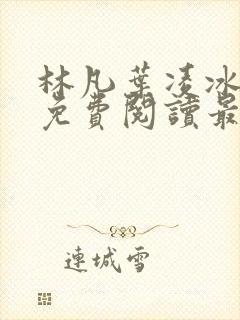 林凡葉凌冰
免費閱讀最
連城雪